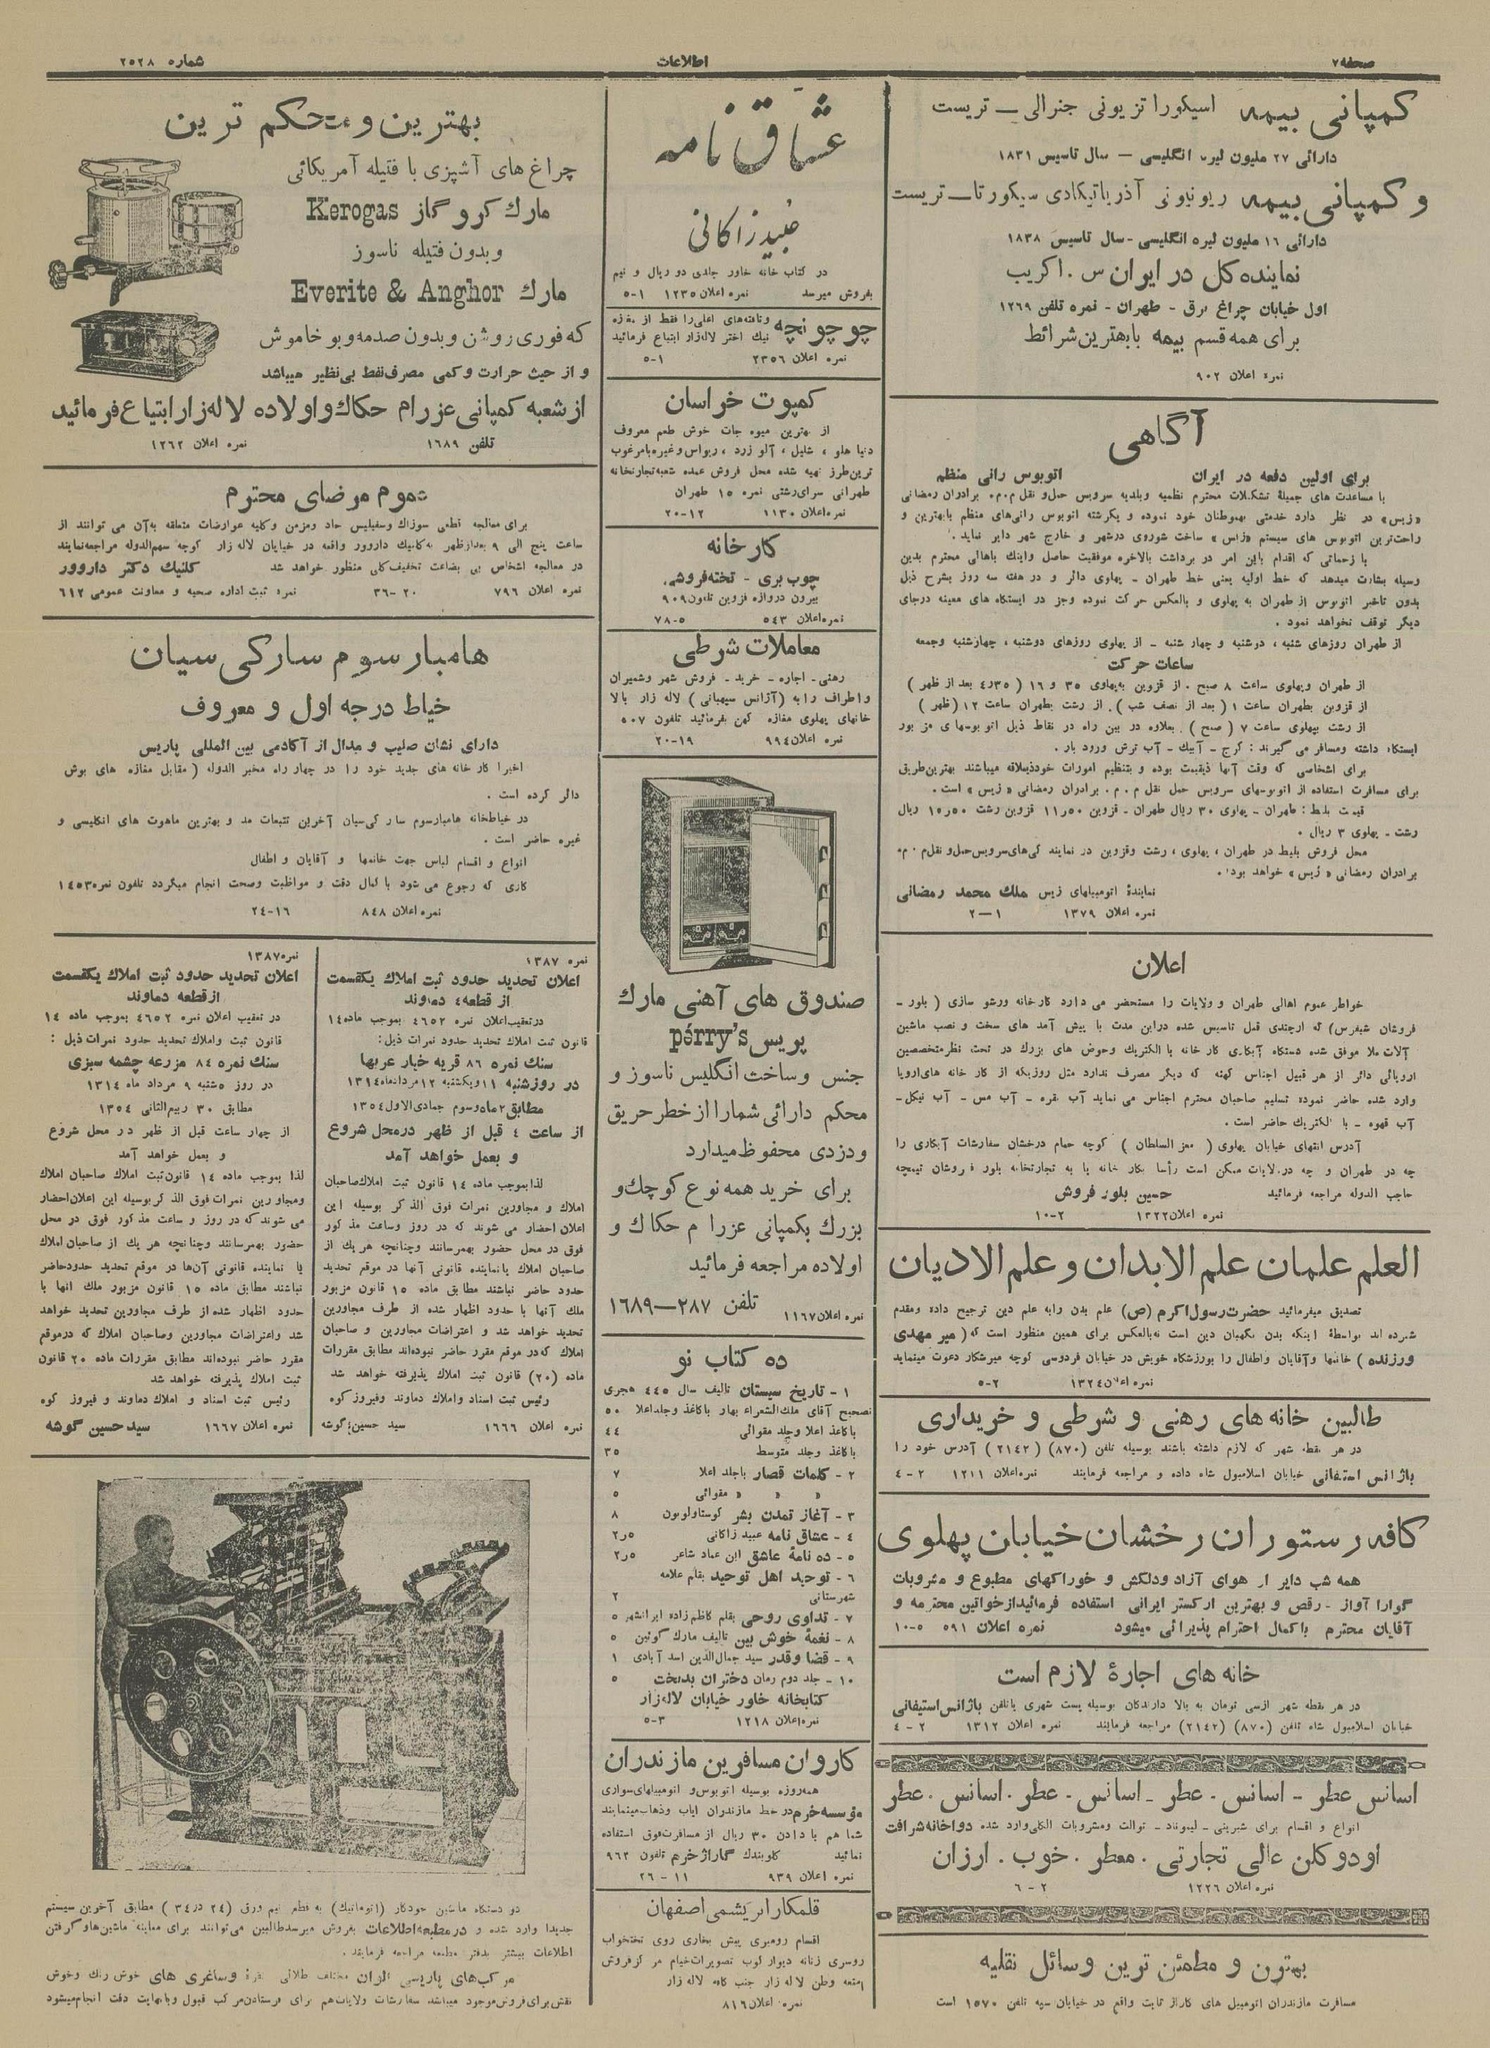 صحفه ۷
اطلاعات
شماره ۲۵۲۸
کمپانی بیمه اسیکوراتزیونی جنرالی — تریست
دارائی ۲۷ ملیون لیره انگلیسی — سال تاسیس ۱۸۳۱
و کمپانی بیمه ریونیونی آدریاتیکادی سیکورتا — تریست
دارائی ۱۶ ملیون لیره انگلیسی - سال تاسیس ۱۸۳۸
نماینده کل در ایران س . اکریب
اول خیابان چراغ برق - طهران - نمره تلفن ۱۲۶۹
برای همه قسم بیمه با بهترین شرائط
نمره اعلان ۹۰۲
آگاهی
برای اولین دفعه در ایران اتوبوس رانی منظم
با مساعدت های جمیلهٔ تشکیلات محترم نظمیه وبلدیه سرویس حمل و نقل م.م. برادران رمضانی
«زیس» در نظر دارد خدمتی بهموطنان خود نموده و یکرشته اتوبوس رانی‌های منظم با بهترین و
راحت‌ترین اتوبوس های سیستم «زاس» ساخت شوروی درشهر و خارج شهر دایر نماید .
با زحماتی که اقدام باین امر در برداشت بالاخره موفقیت حاصل واینک باهالی محترم بدین
وسیله بشارت میدهد که خط اولیه یعنی خط طهران - پهلوی دائر و در هفته سه روز بشرح ذیل
بدون تاخیر اتوبوس از طهران به پهلوی و بالعکس حرکت نموده وجز در ایستگاه های معینه درجای
دیگر توقف نخواهد نمود .
از طهران روزهای شنبه ، دوشنبه و چهار شنبه - از پهلوی روزهای دوشنبه ، چهارشنبه وجمعه
ساعات حرکت
از طهران وپهلوی ساعت ۸ صبح . از قزوین به‌پهلوی ۳۵ و ۱۶ ( ۴٫۳۵ بعد از ظهر )
از قزوین بطهران ساعت ۱ ( بعد از نصف شب ) . از رشت بطهران ساعت ۱۲ ( ظهر )
از رشت بپهلوی ساعت ۷ ( صبح ) . بعلاوه در بین راه در نقاط ذیل اتوبوسهای مزبور
ایستگاه داشته ومسافر می گیرند : کرج - آبیک - آب ترش ورود بار .
برای اشخاصی که وقت آنها ذیقیمت بوده و بتنظیم امورات خودذیعلاقه میباشند بهترین طریق
برای مسافرت استفاده از اتوبوسهای سرویس حمل نقل م . م . برادران رمضانی «زیس» است .
قیمت بلیط : طهران - پهلوی ۳۰ ریال طهران - قزوین ۱۱٫۵۰ قزوین رشت ۱۵٫۵۰ ریال
رشت - پهلوی ۳ ریال .
محل فروش بلیط در طهران ، پهلوی ، رشت وقزوین در نمایندگی‌های سرویس حمل و نقل م . م .
برادران رمضانی «زیس» خواهد بود .
نمایندهٔ اتومبیلهای زیس ملک محمد رمضانی
نمره اعلان ۱۳۷۹ ۱—۲
اعلان
خواطر عموم اهالی طهران و ولایات را مستحضر می دارد کارخانه ورشو سازی ( بلور -
فروشان شیفرس) که ازچندی قبل تاسیس شده دراین مدت با پیش آمد های سخت و نصب ماشین
آلات ملا موفق شده دستگاه آبکاری کارخانه با الکتریک وحوض های بزرگ در تحت نظر متخصصین
اروپائی دائر از هر قبیل اجناس کهنه که دیگر مصرف ندارد مثل روزیکه از کارخانه های اروپا
وارد شده حاضر نموده تسلیم صاحبان محترم اجناس می نماید آب نقره - آب مس - آب نیکل -
آب قهوه - با الکتریک حاضر است .
آدرس انتهای خیابان پهلوی ( معزالسلطان ) کوچه حمام درخشان سفارشات آبکاری را
چه در طهران و چه در ولایات ممکن است رأسا بکارخانه یا به تجارتخانه بلور فروشان تیمچه
حاجب الدوله مراجعه فرمائید حسین بلور فروش
نمره اعلان ۱۳۲۲ ۲-۱۰
العلم علمان علم الابدان و علم الادیان
تصدیق میفرمائید حضرت رسول اکرم (ص) علم بدن رابه علم دین ترجیح داده ومقدم
شمرده اند بواسطهٔ اینکه بدن نگهبان دین است نه بالعکس برای همین منظور است که ( میر مهدی
ورزنده ) خانمها وآقایان واطفال را بورزشگاه خویش در خیابان فردوسی کوچه میرشکار دعوت مینماید
نمره اعلان ۱۳۲۴ ۲-۵
طالبین خانه های رهنی و شرطی و خریداری
در هر نقطه شهر که لازم داشته باشند بوسیله تلفن (۸۷۰) (۲۱۴۲) آدرس خود را
بآژانس استفانی خیابان اسلامبول شاه داده و مراجعه فرمایند نمره اعلان ۱۲۱۱ ۲-۴
کافه رستوران رخشان خیابان پهلوی
همه شب دایر از هوای آزاد ودلکش و خوراکهای مطبوع و مشروبات
گوارا آواز - رقص و بهترین ارکستر ایرانی استفاده فرمائید از خواتین محترمه و
آقایان محترم با کمال احترام پذیرائی میشود نمره اعلان ۵۹۱ ۵-۱۰
خانه های اجارهٔ لازم است
در هر نقطه شهر ازسی تومان به بالا دارندگان بوسیله پست شهری یا تلفن بآژانس استیفانی
خیابان اسلامبول شاه تلفن (۸۷۰) (۲۱۴۲) مراجعه فرمایند نمره اعلان ۱۳۱۲ ۲-۴
اسانس عطر - اسانس . عطر - اسانس . عطر . اسانس . عطر
انواع و اقسام برای شیرینی - لیموناد - توالت ومشروبات الکلی وارد شده دواخانه شرافت
اودوکلن عالی تجارتی . معطر . خوب . ارزان
نمره اعلان ۱۲۲۶ ۲-۶
بهترین و مطمئن ترین وسائل نقلیه
مسافرت مازندران اتومبیل های گاراژ ثابت واقع در خیابان سپه تلفن ۱۵۷۰ است
عشاق نامه
عبید زاکانی
در کتاب خانه خاور جلدی دو ریال و نیم
بفروش میرسد نمره اعلان ۱۲۳۵ ۱-۵
چوچونچه وتافته‌های اعلی را فقط از مغازه
نیک اختر لاله زار ابتیاع فرمائید
نمره اعلان ۲۳۵۶ ۱-۵
کمپوت خراسان
از بهترین میوه جات خوش طعم معروف
دنیا هلو ، شلیل ، آلو زرد ، ریواس وغیره بامرغوب
ترین‌طرز تهیه شده محل فروش عمده شعبه تجارتخانه
طهرانی سرای‌رشتی نمره ۱۵ طهران
نمره اعلان ۱۱۳۰ ۱۲-۲۰
کارخانه
چوب بری - تخته‌فروشی
بیرون دروازه قزوین تلفون ۹۰۹
نمره اعلان ۵۴۳ ۵-۷۸
معاملات شرطی
رهنی - اجاره - خرید - فروش شهر وشمیران
واطراف را به (آژانس سپهبانی ) لاله زار بالا
خانهای پهلوی مغازه کهن بفرمائید تلفون ۵۰۷
نمره اعلان ۹۹۴ ۱۹-۲۰
صندوق های آهنی مارک
پریس pérry's
جنس و ساخت انگلیس ناسوز و
محکم دارائی شمارا از خطر حریق
و دزدی محفوظ میدارد
برای خرید همه نوع کوچک و
بزرگ بکمپانی عزرا م حکاک و
اولاده مراجعه فرمائید
نمره اعلان ۱۱۶۷ تلفن ۲۸۷—۱۶۸۹
ده کتاب نو
۱ - تاریخ سیستان تالیف سال ۴۴۵ هجری
تصحیح آقای ملک‌الشعراء بهار باکاغذ وجلد اعلا ۵۰
با کاغذ اعلا وجلد مقوائی ۴۴
با کاغذ وجلد متوسط ۳۵
۲ - کلمات قصار باجلد اعلا ۷
» » » مقوائی ۵
۳ - آغاز تمدن بشر گوستاولوبون ۸
۴ - عشاق نامه عبید زاکانی ۲٫۵
۵ - ده نامهٔ عاشق ابن عماد شاعر ۲٫۵
۶ - توحید اهل توحید بقلم علامه
شهرستانی ۲
۷ - تداوی روحی بقلم کاظم زاده ایرانشهر ۵
۸ - نغمهٔ خوش بین تالیف مارک گوئین ۵
۹ - قضا وقدر سید جمال‌الدین اسد آبادی ۱
۱۰ - جلد دوم رمان دختران بدبخت ۵
کتابخانه خاور خیابان لاله‌زار
نمره اعلان ۱۲۱۸ ۳-۵
کاروان مسافرین مازندران
همه‌روزه بوسیله اتوبوس و اتومبیلهای سواری
مؤسسه خرم در خط مازندران ایاب وذهاب مینمایند
شما هم با دادن ۳۰ ریال از مسافرت فوق استفاده
نمائید گاراژ خرم تلفون ۹۶۲
نمره اعلان ۹۳۹ ۱۱-۲۶
قلمکار ابریشمی اصفهان
اقسام رومیزی پیش بخاری روی تختخواب
روسری زنانه دیوار کوب تصویرات خیام مرکز فروش
امتعه وطن لاله زار جنب کافه لاله زار
نمره اعلان ۸۱۶
بهترین و محکم ترین
چراغ های آشپزی با فتیله آمریکائی
مارک کروگاز Kerogas
وبدون فتیله ناسوز
مارک Everite & Anghor
که فوری روشن وبدون صدمه و بو خاموش
و از حیث حرارت وکمی مصرف نفط بی‌نظیر میباشد
از شعبه کمپانی عزرا م حکاک و اولاده لاله زار ابتیاع فرمائید
تلفن ۱۶۸۹ نمره اعلان ۱۲۶۲
عموم مرضای محترم
برای معالجه قطعی سوزاک وسفیلیس حاد ومزمن وکلیه عوارضات متعلقه به‌آن می توانند از
ساعت پنج الی ۹ بعد از ظهر به‌کلنیک داروور واقعه در خیابان لاله زار کوچه سهم‌الدوله مراجعه‌نمایند
در معالجه اشخاص بی بضاعت تخفیف‌کلی منظور خواهد شد کلنیک دکتر داروور
نمره اعلان ۷۹۶ ۲۰-۳۶ نمره ثبت اداره صحیه و معاونت عمومی ۶۱۲
هامبارسوم سارکی سیان
خیاط درجه اول و معروف
دارای نشان صلیب و مدال از آکادمی بین المللی پاریس
اخیرا کارخانه های جدید خود را در چهار راه مخبر الدوله ( مقابل مغازه های بوش
دائر کرده است .
در خیاطخانه هامبارسوم سارکی‌سیان آخرین تتبعات مد و بهترین ماهوت های انگلیسی و
غیره حاضر است .
انواع و اقسام لباس جهت خانمها و آقایان و اطفال
کاری که رجوع می شود با کمال دقت و مواظبت وصحت انجام میگردد تلفون نمره ۱۴۵۳
نمره اعلان ۸۴۸ ۱۶-۲۴
نمره ۱۳۸۷
اعلان تحدید حدود ثبت املاک یکقسمت
از قطعه ٤ دماوند
در تعقیب اعلان نمره ۴۶۵۲ بموجب ماده ۱۴
قانون ثبت املاک تحدید حدود نمرات ذیل :
سنک نمره ۸۶ قریه خبار عربها
در روز شنبه ۱۱ ویکشنبه ۱۲ مرداد ماه ۱۳۱۴
مطابق ۲ ماه وسوم جمادی الاول ۱۳۵۴
از ساعت ٤ قبل از ظهر در محل شروع
و بعمل خواهد آمد
لذا بموجب ماده ۱۴ قانون ثبت املاک صاحبان
املاک و مجاورین نمرات فوق الذکر بوسیله این
اعلان احضار می شوند که در روز وساعت مذکور
فوق در محل حضور بهمرسانند وچنانچه هر یک از
صاحبان املاک یانماینده قانونی آنها در موقع تحدید
حدود حاضر نباشند مطابق ماده ۱۵ قانون مزبور
ملک آنها با حدود اظهار شده از طرف مجاورین
تحدید خواهد شد و اعتراضات مجاورین و صاحبان
املاک که در موقع مقرر حاضر نبوده‌اند مطابق مقررات
ماده (۲۰) قانون ثبت املاک پذیرفته خواهد شد
رئیس ثبت اسناد واملاک دماوند وفیروزکوه
نمره اعلان ۱۶۶۶ سید حسین گوشه
نمره ۱۳۸۷
اعلان تحدید حدود ثبت املاک یکقسمت
از قطعه دماوند
در تعقیب اعلان نمره ۴۶۵۲ بموجب ماده ۱۴
قانون ثبت واملاک تحدید حدود نمرات ذیل :
سنک نمره ۸۴ مزرعه چشمه سبزی
در روز ۵شنبه ۹ مرداد ماه ۱۳۱۴
مطابق ۳۰ ربیع‌الثانی ۱۳۵۴
از چهار ساعت قبل از ظهر در محل شروع
و بعمل خواهد آمد
لذا بموجب ماده ۱۴ قانون ثبت املاک صاحبان املاک
ومجاورین نمرات فوق الذکر بوسیله این اعلان احضار
می شوند که در روز و ساعت مذکور فوق در محل
حضور بهمرسانند وچنانچه هر یک از صاحبان املاک
یا نماینده قانونی آن‌ها در موقع تحدید حدود حاضر
نباشند مطابق ماده ۱۵ قانون مزبور ملک انها با
حدود اظهار شده از طرف مجاورین تحدید خواهد
شد واعتراضات مجاورین وصاحبان املاک که در موقع
مقرر حاضر نبوده‌اند مطابق مقررات ماده ۲۰ قانون
ثبت املاک پذیرفته خواهد شد
رئیس ثبت اسناد و املاک دماوند و فیروز کوه
نمره اعلان ۱۶۶۷ سید حسین گوشه
دو دستگاه ماشین خودکار (اتوماتیک) به قطع نیم ورق (۲۴ در ۳۴) مطابق آخرین سیستم
جدیدا وارد شده و در مطبعه اطلاعات بفروش میرسد طالبین می‌توانند برای معاینه ماشین‌ها و گرفتن
اطلاعات بیشتر بدفتر مطبعه مراجعه فرمایند .
مرکب‌های پاریسی الوان مختلف طلائی نقرهٔ وساغری های خوش رنک وخوش
نقش برای فروش موجود میباشد سفارشات ولایات هم برای فرستادن مرکب قبول وبانهایت دقت انجام میشود